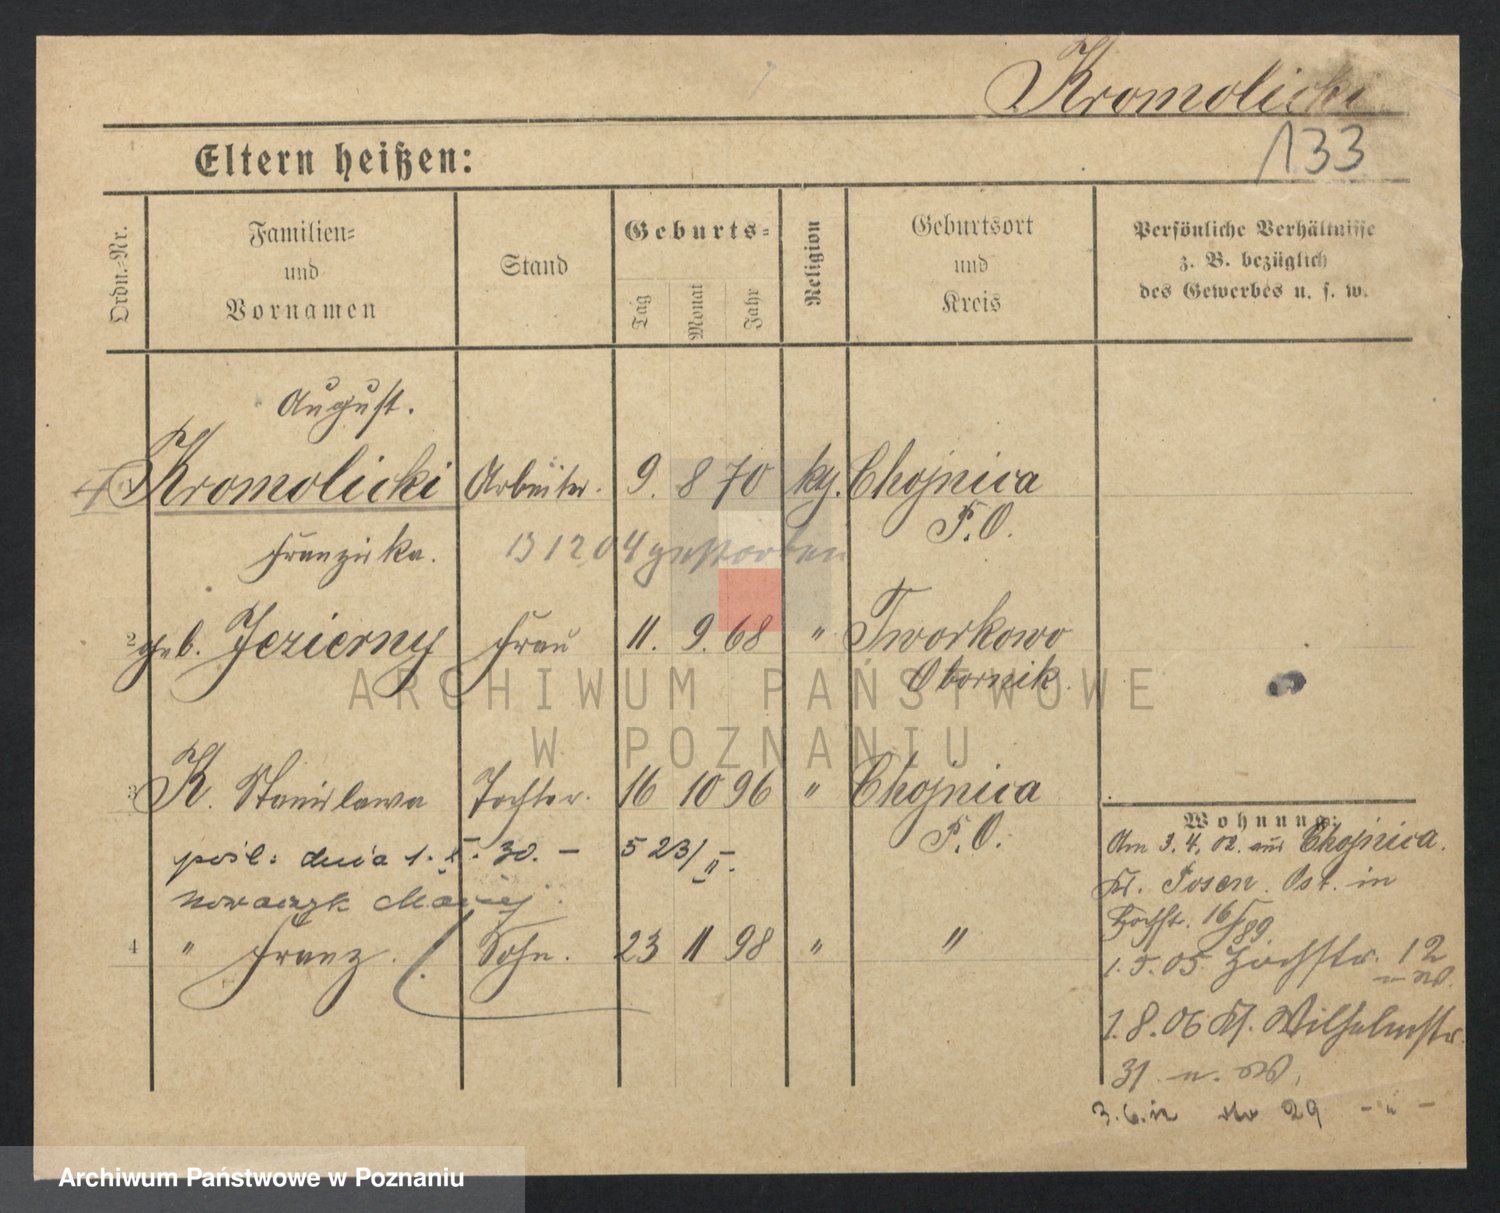 Kromolicki
133
Eltern heißen:
Ordn.-Nr.
Familien- und Vornamen
Stand
Geburts-
Tag
Monat
Jahr
Religion
Geburtsort und Kreis
Persönliche Verhältnisse z. B. bezüglich des Gewerbes u. s. w.
August.
Kromolicki Arbeiter. 9. 8 70 Chojnica
P.O.
Franziska. 13 12 04 gestorben
2 geb. Jezierny Frau 11. 9. 68 " Tworkowo
Obornik.
ARCHIWUM PAŃSTWOWE
W POZNANIU
3 K. Stanislawa Tochter. 16 10 96 " Chojnica
P.O.
pośl: dnia 1. 30. – 5 23/II.
Nowaczyk Maciej.
4 " Franz. Sohn. 23 11 98 " "
Wohnung:
Am 3. 4. 02. aus Chojnica.
Kr. Posen. Ost. in
1.5.05. 12
1.8.06 Kl. Wilhelmstr.
31
3.6. 29 – " –
Archiwum Państwowe w Poznaniu